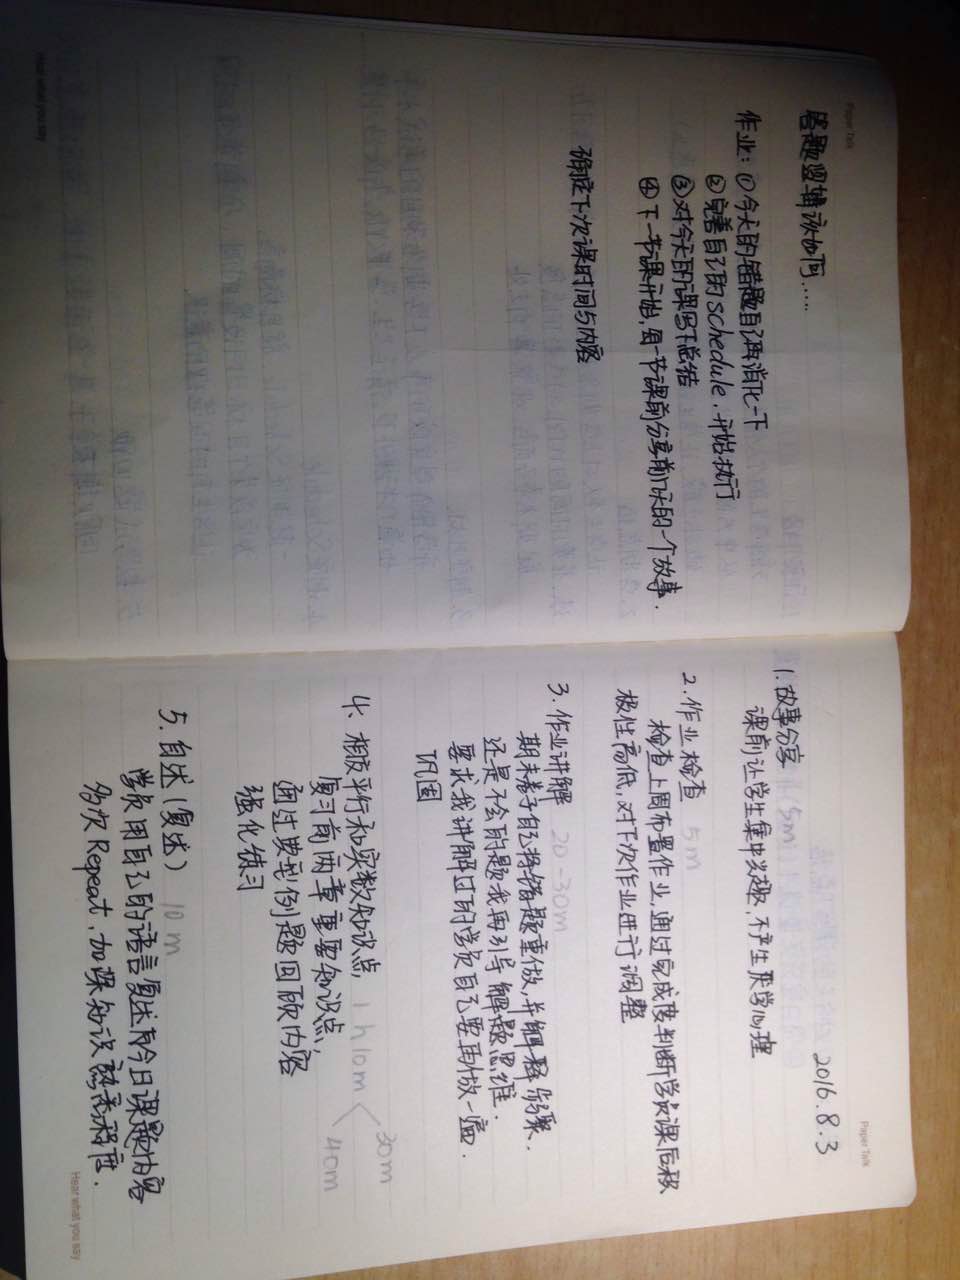 Paper Talk
答题逻辑该如何.....
作业：①今天的错题自己再消化一下
②完善自己的schedule，开始执行
③对今天的课写下总结
④下一节课开始，每一节课前分享前几天的一个故事.
确定下次课时间与内容
Hear what you say
Paper Talk
2016.8.3
1.故事分享 15m
课前让学生集中兴趣，不产生厌学心理
2.作业检查 5m
检查上周布置作业，通过完成度判断学员课后积
极性高低，对下次作业进行调整
3.作业讲解 20-30m
期末卷子自己将错题重做，并解释步骤.
还是不会的题我再引导解题思维.
要求我讲解过的学员自己要再做一遍.
巩固
4.相交平行和实数知识点， 1h10m < 30m
复习前两章重要知识点， 40m
通过典型例题回顾内容
强化练习
5.自述（复述） 10m
学员用自己的语言复述今日课题内容
多次Repeat，加深知识熟悉程度.
Hear what you say